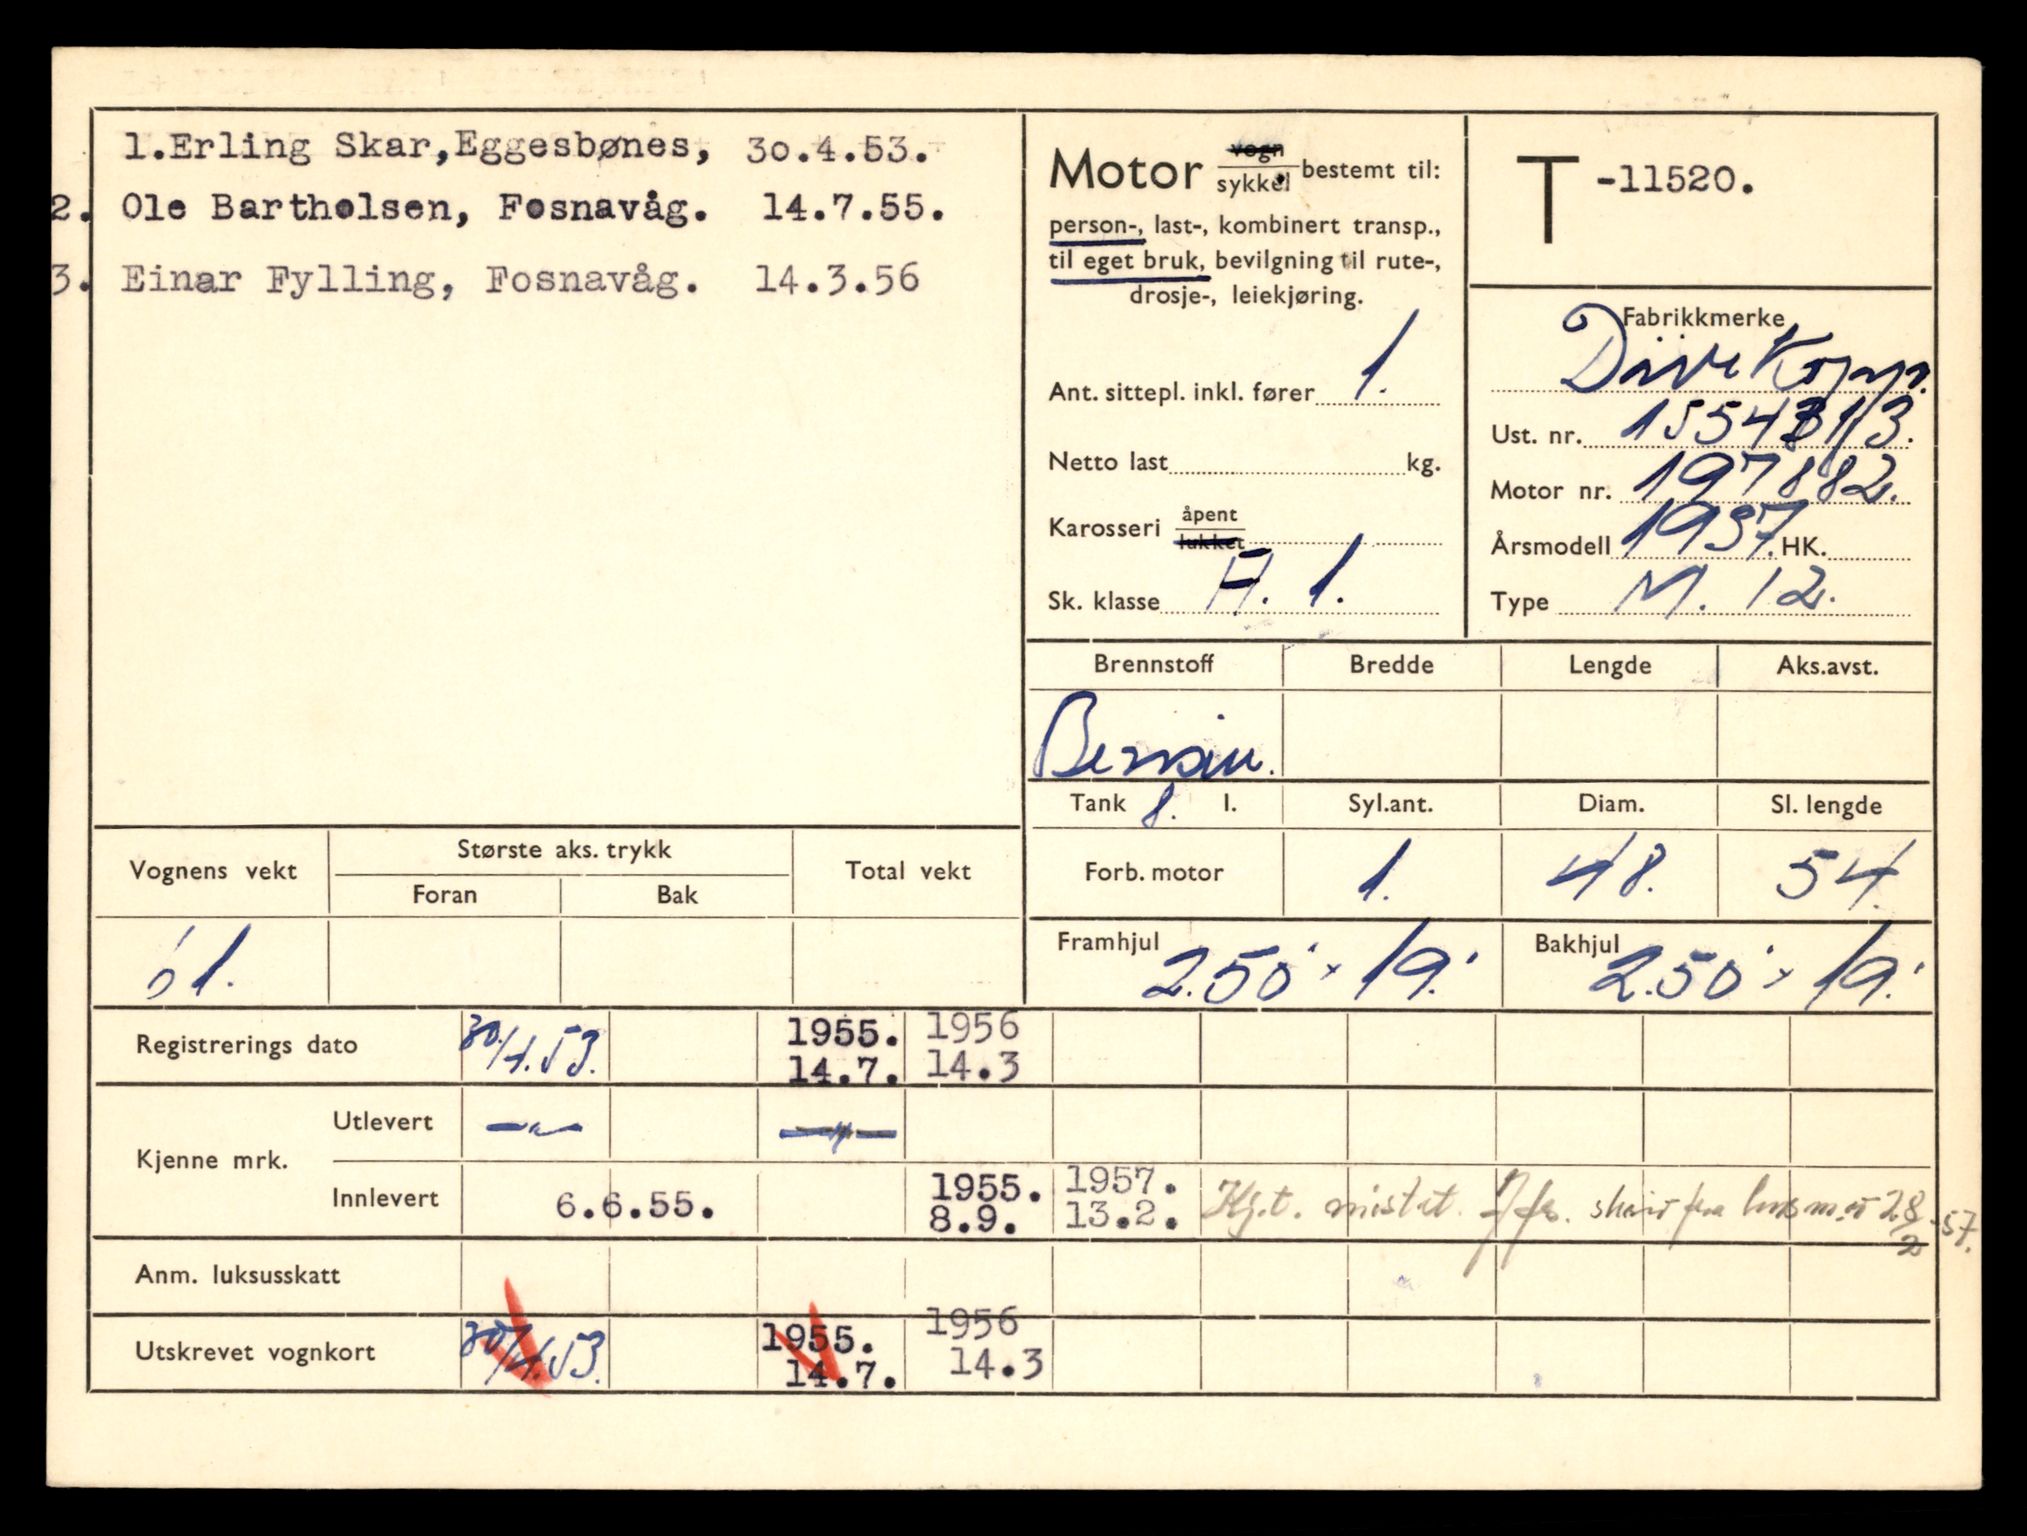 1.Erling Skar,Eggesbønes, 30.4.53.
2. Ole Bartholsen, Fosnavåg. 14.7.55.
3. Einar Fylling, Fosnavåg. 14.3.56
Motor vogn
sykkel bestemt til:
person-, last-, kombinert transp.,
til eget bruk, bevilgning til rute-,
drosje-, leiekjøring.
Ant. sittepl. inkl. fører 1.
Netto last kg.
Karosseri åpent
lukket
Sk. klasse A. 1.
T -11520.
Fabrikkmerke
Ust. nr.
Motor nr. 197882.
Årsmodell 1937. HK.
Type M. 12.
Brennstoff Bredde Lengde Aks.avst.
Bensin.
Tank 8. l. Syl.ant. Diam. Sl. lengde
Forb. motor 1. 48. 54.
Framhjul 2.50" x 19." Bakhjul 2.50" x 19."
Vognens vekt Største aks. trykk Total vekt
Foran Bak
61.
Registrerings dato 30/4.53. 1955. 1956
14.7. 14.3
Kjenne mrk. Utlevert —"— —"—
Innlevert 6.6.55. 1955. 1957. Kj.t. mistet.
8.9. 13.2. 28/2-57.
Anm. luksusskatt
Utskrevet vognkort 30/4.53. 1955. 1956
14.7. 14.3